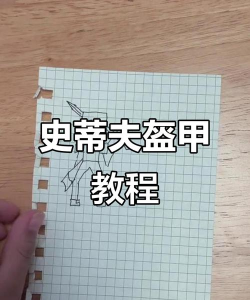 史蒂夫盔甲
教程